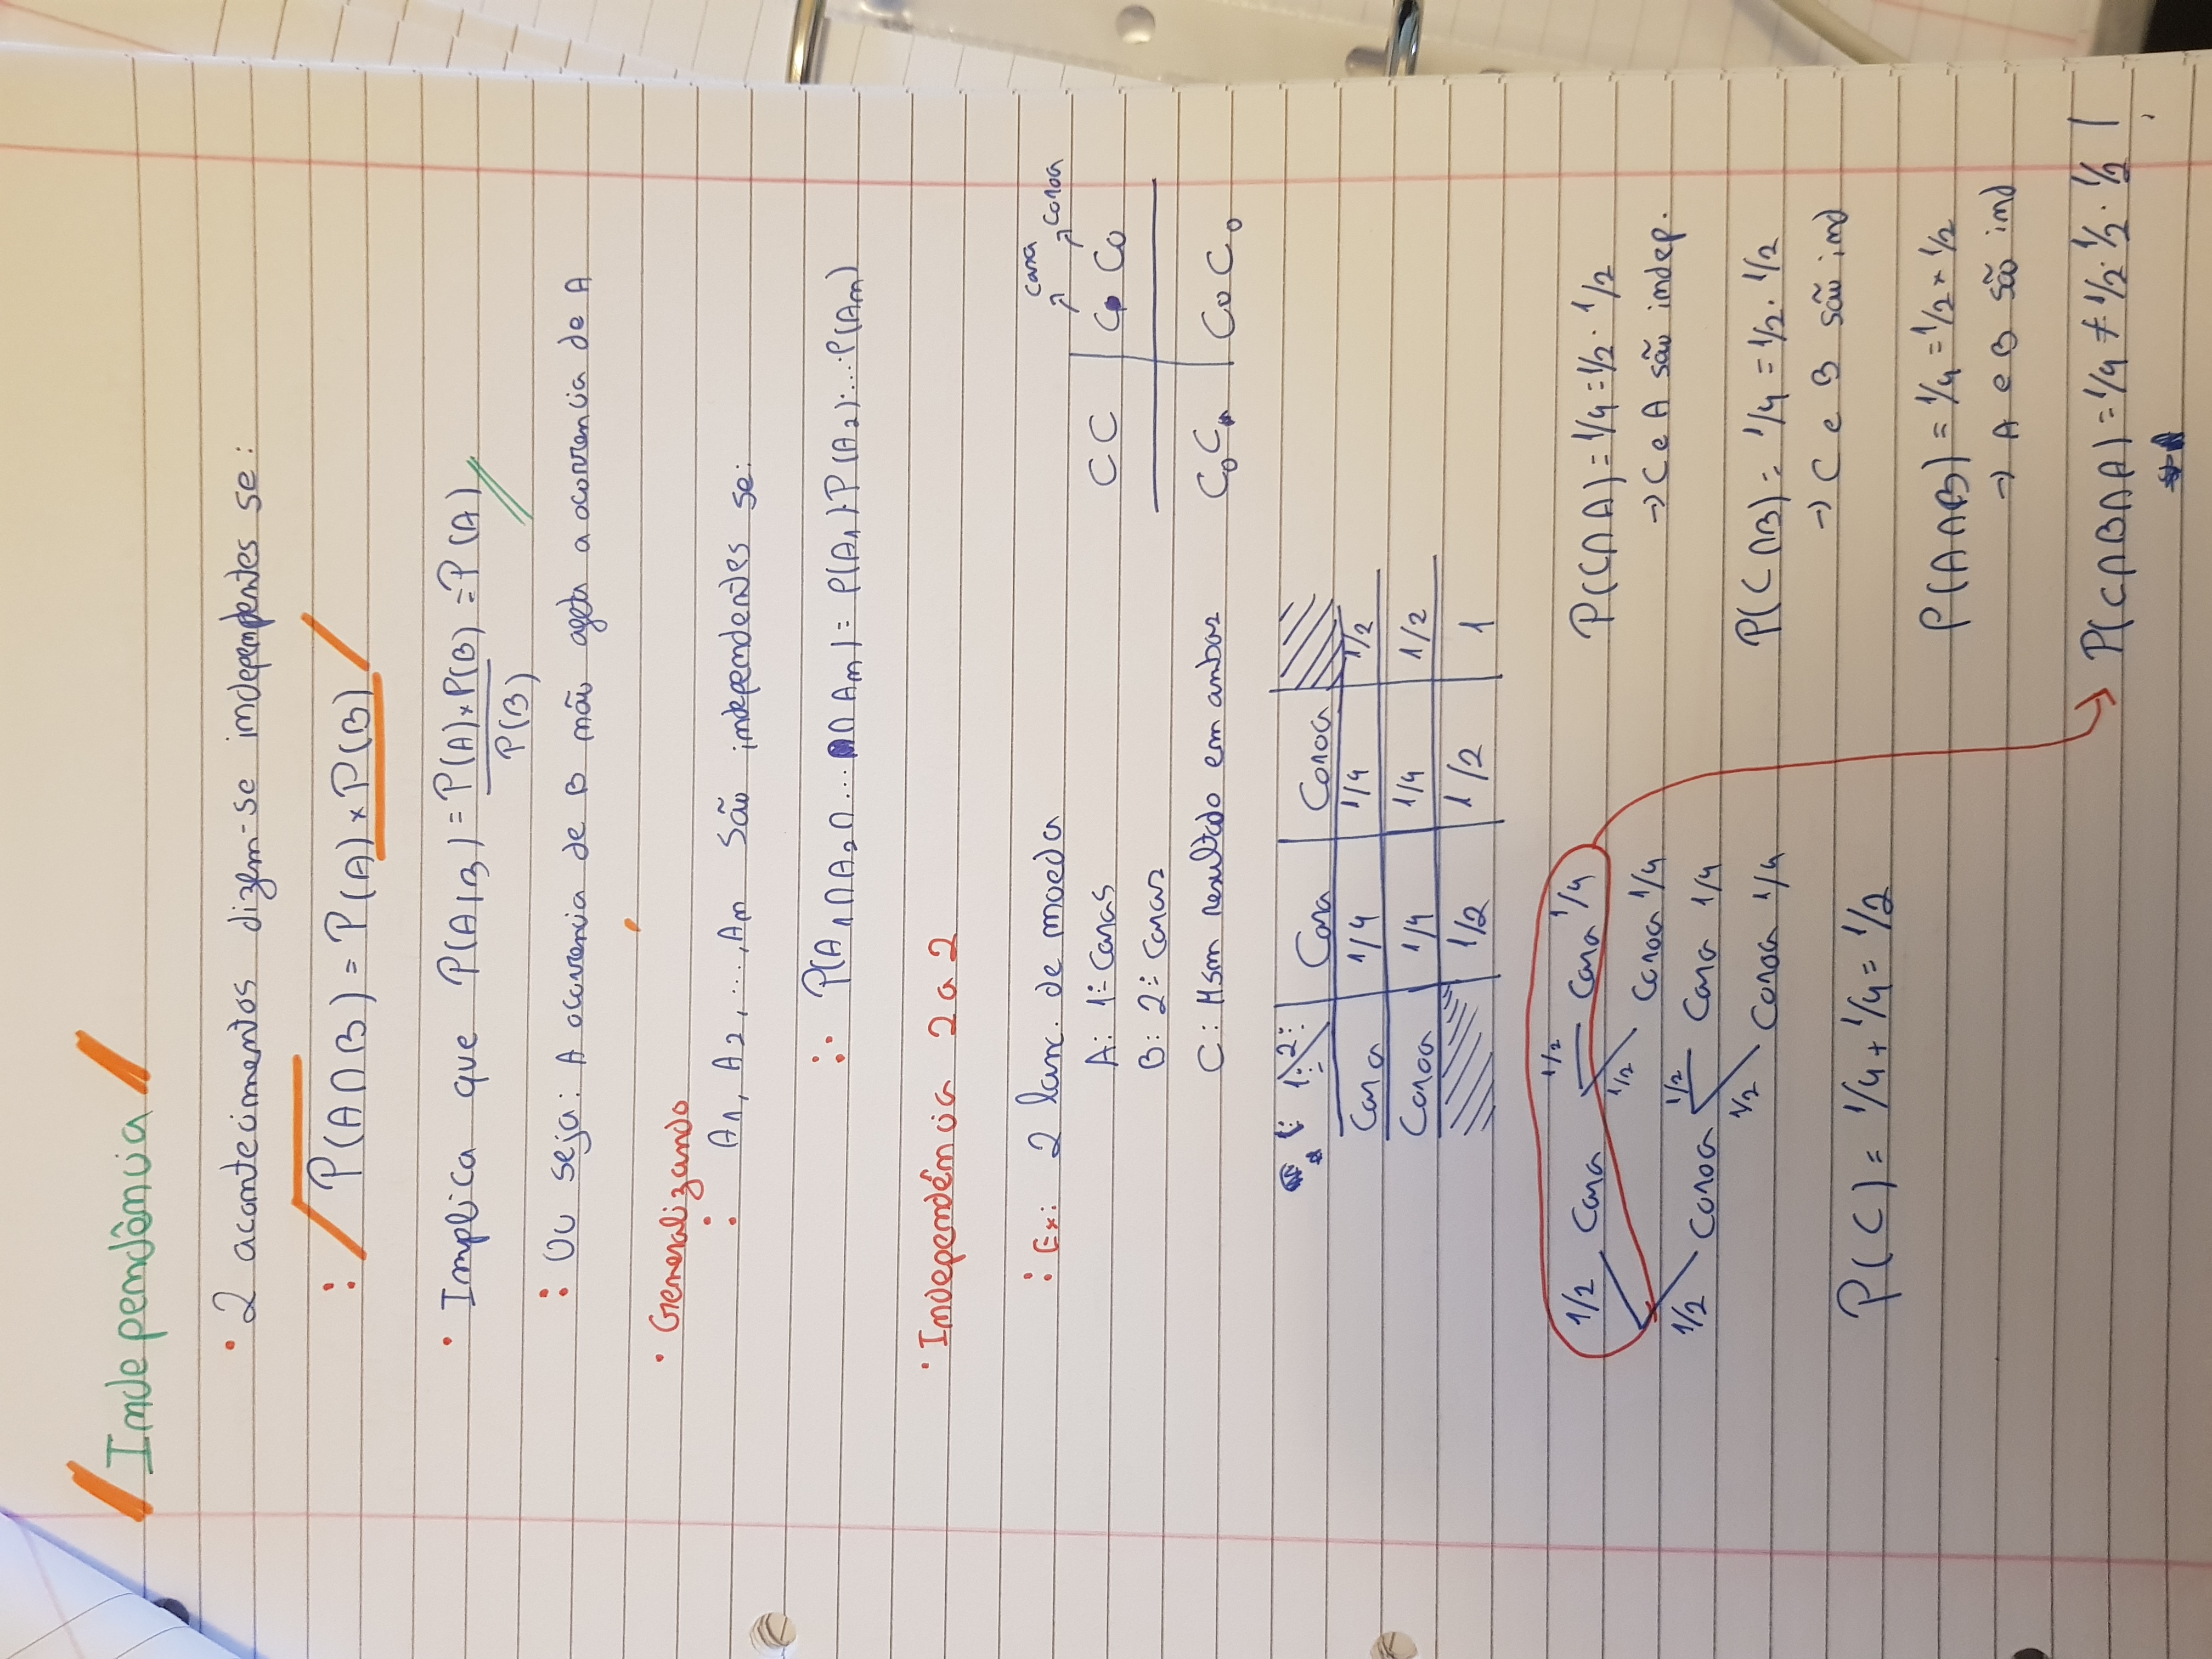 Independência
· 2 acontecimentos dizem-se independentes se:
: P(A∩B) = P(A) × P(B)
· Implica que P(A|B) = P(A)×P(B) = P(A)
P(B)
: Ou seja: A ocorrencia de B não afeta a ocorrencia de A
· Generalizando
: A1, A2, ..., Am são independentes se:
P(A1∩A2∩...∩Am) = P(A1)·P(A2)·...·P(Am)
· Independência 2 a 2
: Ex: 2 lanc. de moeda
cara
coroa
A: 1ª caras
CC Co
B: 2ª caras
C: Msm resultado em ambas
Co C Co Co
1ª 2ª Cara Coroa
Cara 1/4 1/4 1/2
Coroa 1/4 1/4 1/2
1/2 1/2 1
1/2 Cara 1/2 Cara 1/4
1/2 Coroa 1/4
1/2 Coroa 1/2 Cara 1/4
1/2 Coroa 1/4
P(C) = 1/4 + 1/4 = 1/2
P(C∩A) = 1/4 = 1/2 · 1/2
→ C e A são indep.
P(C∩B) = 1/4 = 1/2 · 1/2
→ C e B são ind
P(A∩B) = 1/4 = 1/2 × 1/2
→ A e B são ind
P(C∩B∩A) = 1/4 ≠ 1/2 · 1/2 · 1/2 !